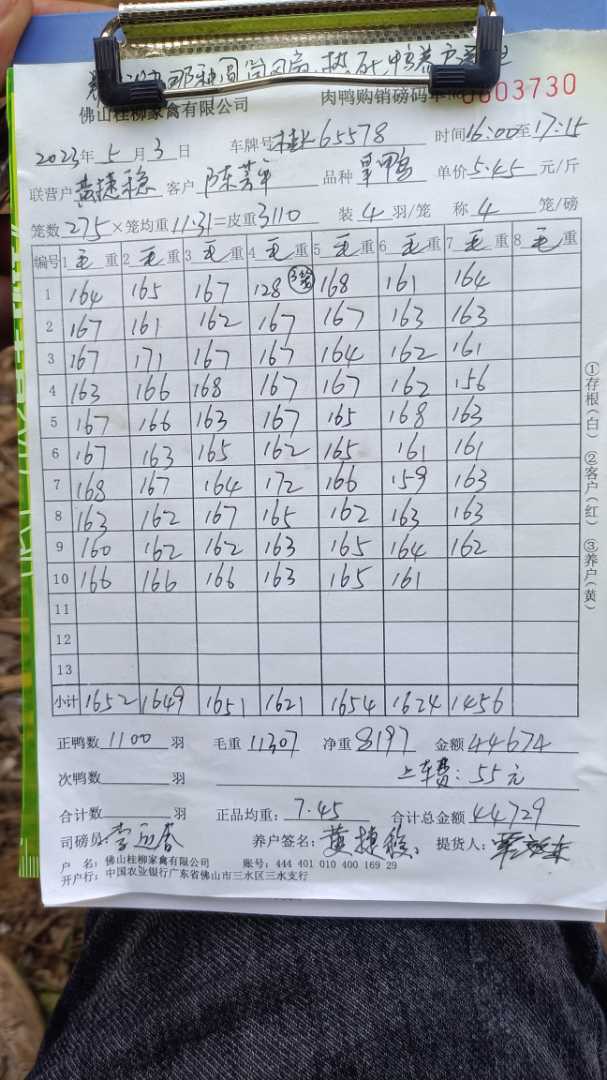 佛山桂柳家禽有限公司 肉鸭购销磅码单 No 0003730
2023年5月3日 车牌号 65578 时间16:00至17:15
联营户 黄捷稳 客户 陈 品种 鸭 单价5.45元/斤
笼数275×笼均重11.31=皮重3110 装4羽/笼 称4笼/磅
编号 1毛重 2毛重 3毛重 4毛重 5毛重 6毛重 7毛重 8毛重
1 164 165 167 128 168 161 164
2 167 161 162 167 167 163 163
3 167 171 167 167 164 162 161
4 163 166 168 167 167 162 156
5 167 166 163 167 165 168 163
6 167 163 165 162 165 161 161
7 168 167 164 172 166 159 163
8 163 162 167 165 162 163 163
9 160 162 162 163 165 164 162
10 166 166 166 163 165 161
11
12
13
小计 1652 1649 1651 1621 1654 1624 1456
正鸭数1100羽 毛重11307 净重8197 金额44674
次鸭数 羽 上车费：55元
合计数 羽 正品均重：7.45 合计总金额44729
司磅员： 养户签名： 黄捷稳 提货人：
户 名：佛山桂柳家禽有限公司 账号：444 401 010 400 169 29
开户行：中国农业银行广东省佛山市三水区三水支行
①存根（白） ②客户（红） ③养户（黄）